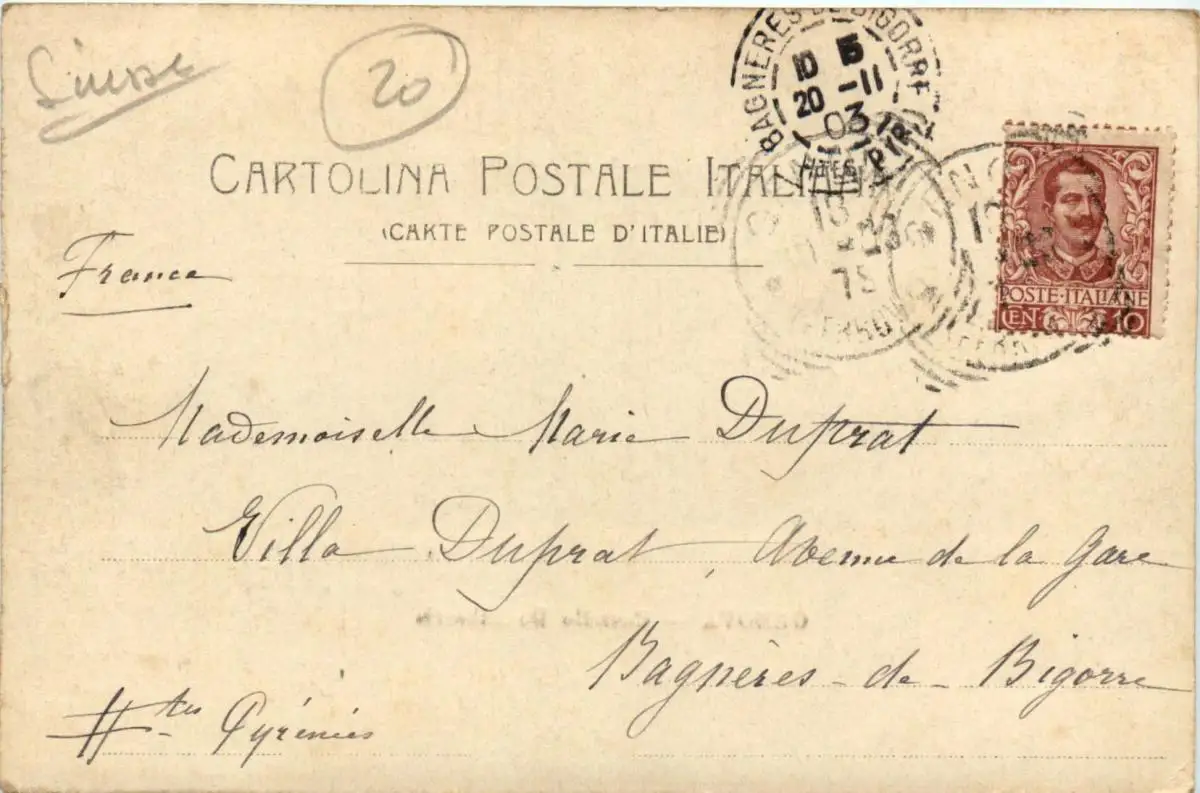 Suisse
20
BAGNERES DE BIGORRE
10 5
20 -11
03
HTES PYR
CARTOLINA POSTALE ITALIANA
(CARTE POSTALE D'ITALIE)
France
POSTE·ITALIANE
CEN 10
Mademoiselle Marie Duprat
Villa Duprat, Avenue de la Gare
Bagnères-de-Bigorre
Htes Pyrénées